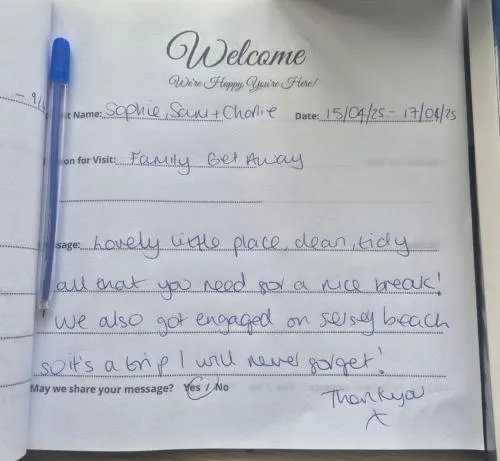 Welcome
We're Happy You're Here!
t Name: Sophie, Sam + Charlie Date: 15/04/25 - 17/04/25
on for Visit: Family Get Away
sage: Lovely little place, clean, tidy
all that you need for a nice break!
We also got engaged on selsey beach
so it's a trip I will never forget!
May we share your message? Yes / No
Thankyou
x